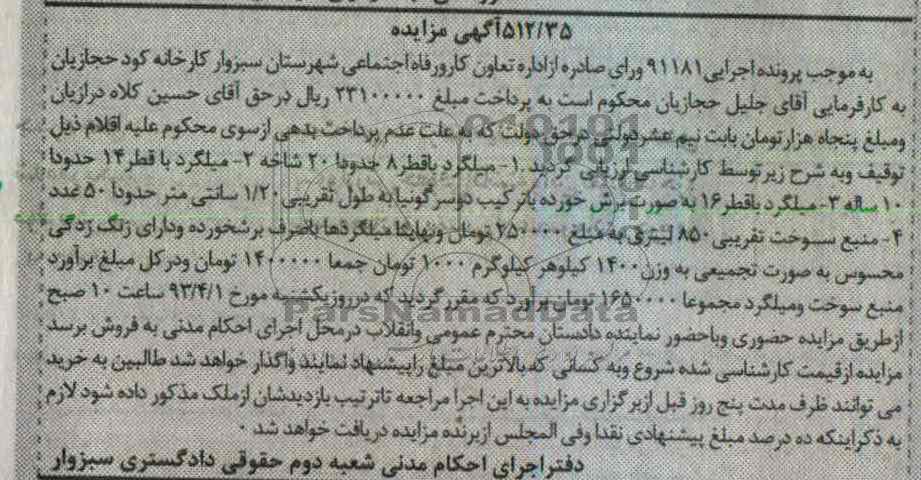 ۵۱۲/۳۵آگهی مزایده
به موجب پرونده اجرایی ۹۱۱۸۱ ورای صادره ازاداره تعاون کارورفاه اجتماعی شهرستان سبزوار کارخانه کود حجازیان
به کارفرمایی آقای جلیل حجازیان محکوم است به پرداخت مبلغ ۲۳۱۰۰۰۰۰ ریال درحق آقای حسین کلاه درازیان
ومبلغ پنجاه هزار تومان بابت نیم عشر دولتی درحق دولت که به علت عدم پرداخت بدهی ازسوی محکوم علیه اقلام ذیل
توقیف وبه شرح زیر توسط کارشناسی ارزیابی گردید .۱- میلگرد باقطر ۸ حدودا ۲۰ شاخه ۲- میلگرد با قطر ۱۴ حدودا
۱۰ ساله ۳- میلگرد باقطر ۱۶ به صورت برش خورده باتر کیب دوسر گونیا به طول تقریبی ۱/۲۰ سانتی متر حدودا ۵۰ عدد
۴- منبع سوخت تقریبی ۸۵۰ لیتری به مبلغ ۲۵۰۰۰۰ تومان ونهایتا میلگردها باصرف برشخورده ودارای زنگ زدگی
محسوس به صورت تجمیعی به وزن ۱۴۰۰ کیلوهر کیلوگرم ۱۰۰۰ تومان جمعا ۱۴۰۰۰۰۰ تومان ودرکل مبلغ برآورد
منبع سوخت ومیلگرد مجموعا ۱۶۵۰۰۰۰ تومان برآورد که مقرر گردید که درروزیکشنبه مورخ ۹۳/۴/۱ ساعت ۱۰ صبح
ازطریق مزایده حضوری وباحضور نماینده دادستان محترم عمومی وانقلاب درمحل اجرای احکام مدنی به فروش برسد
مزایده ازقیمت کارشناسی شده شروع وبه کسانی که بالاترین مبلغ راپیشنهاد نمایند واگذار خواهد شد طالبین به خرید
می توانند ظرف مدت پنج روز قبل ازبرگزاری مزایده به این اجرا مراجعه تاترتیب بازدیدشان ازملک مذکور داده شود لازم
به ذکراینکه ده درصد مبلغ پیشنهادی نقدا وفی المجلس ازبرنده مزایده دریافت خواهد شد .
دفتراجرای احکام مدنی شعبه دوم حقوقی دادگستری سبزوار
ParsNamadData